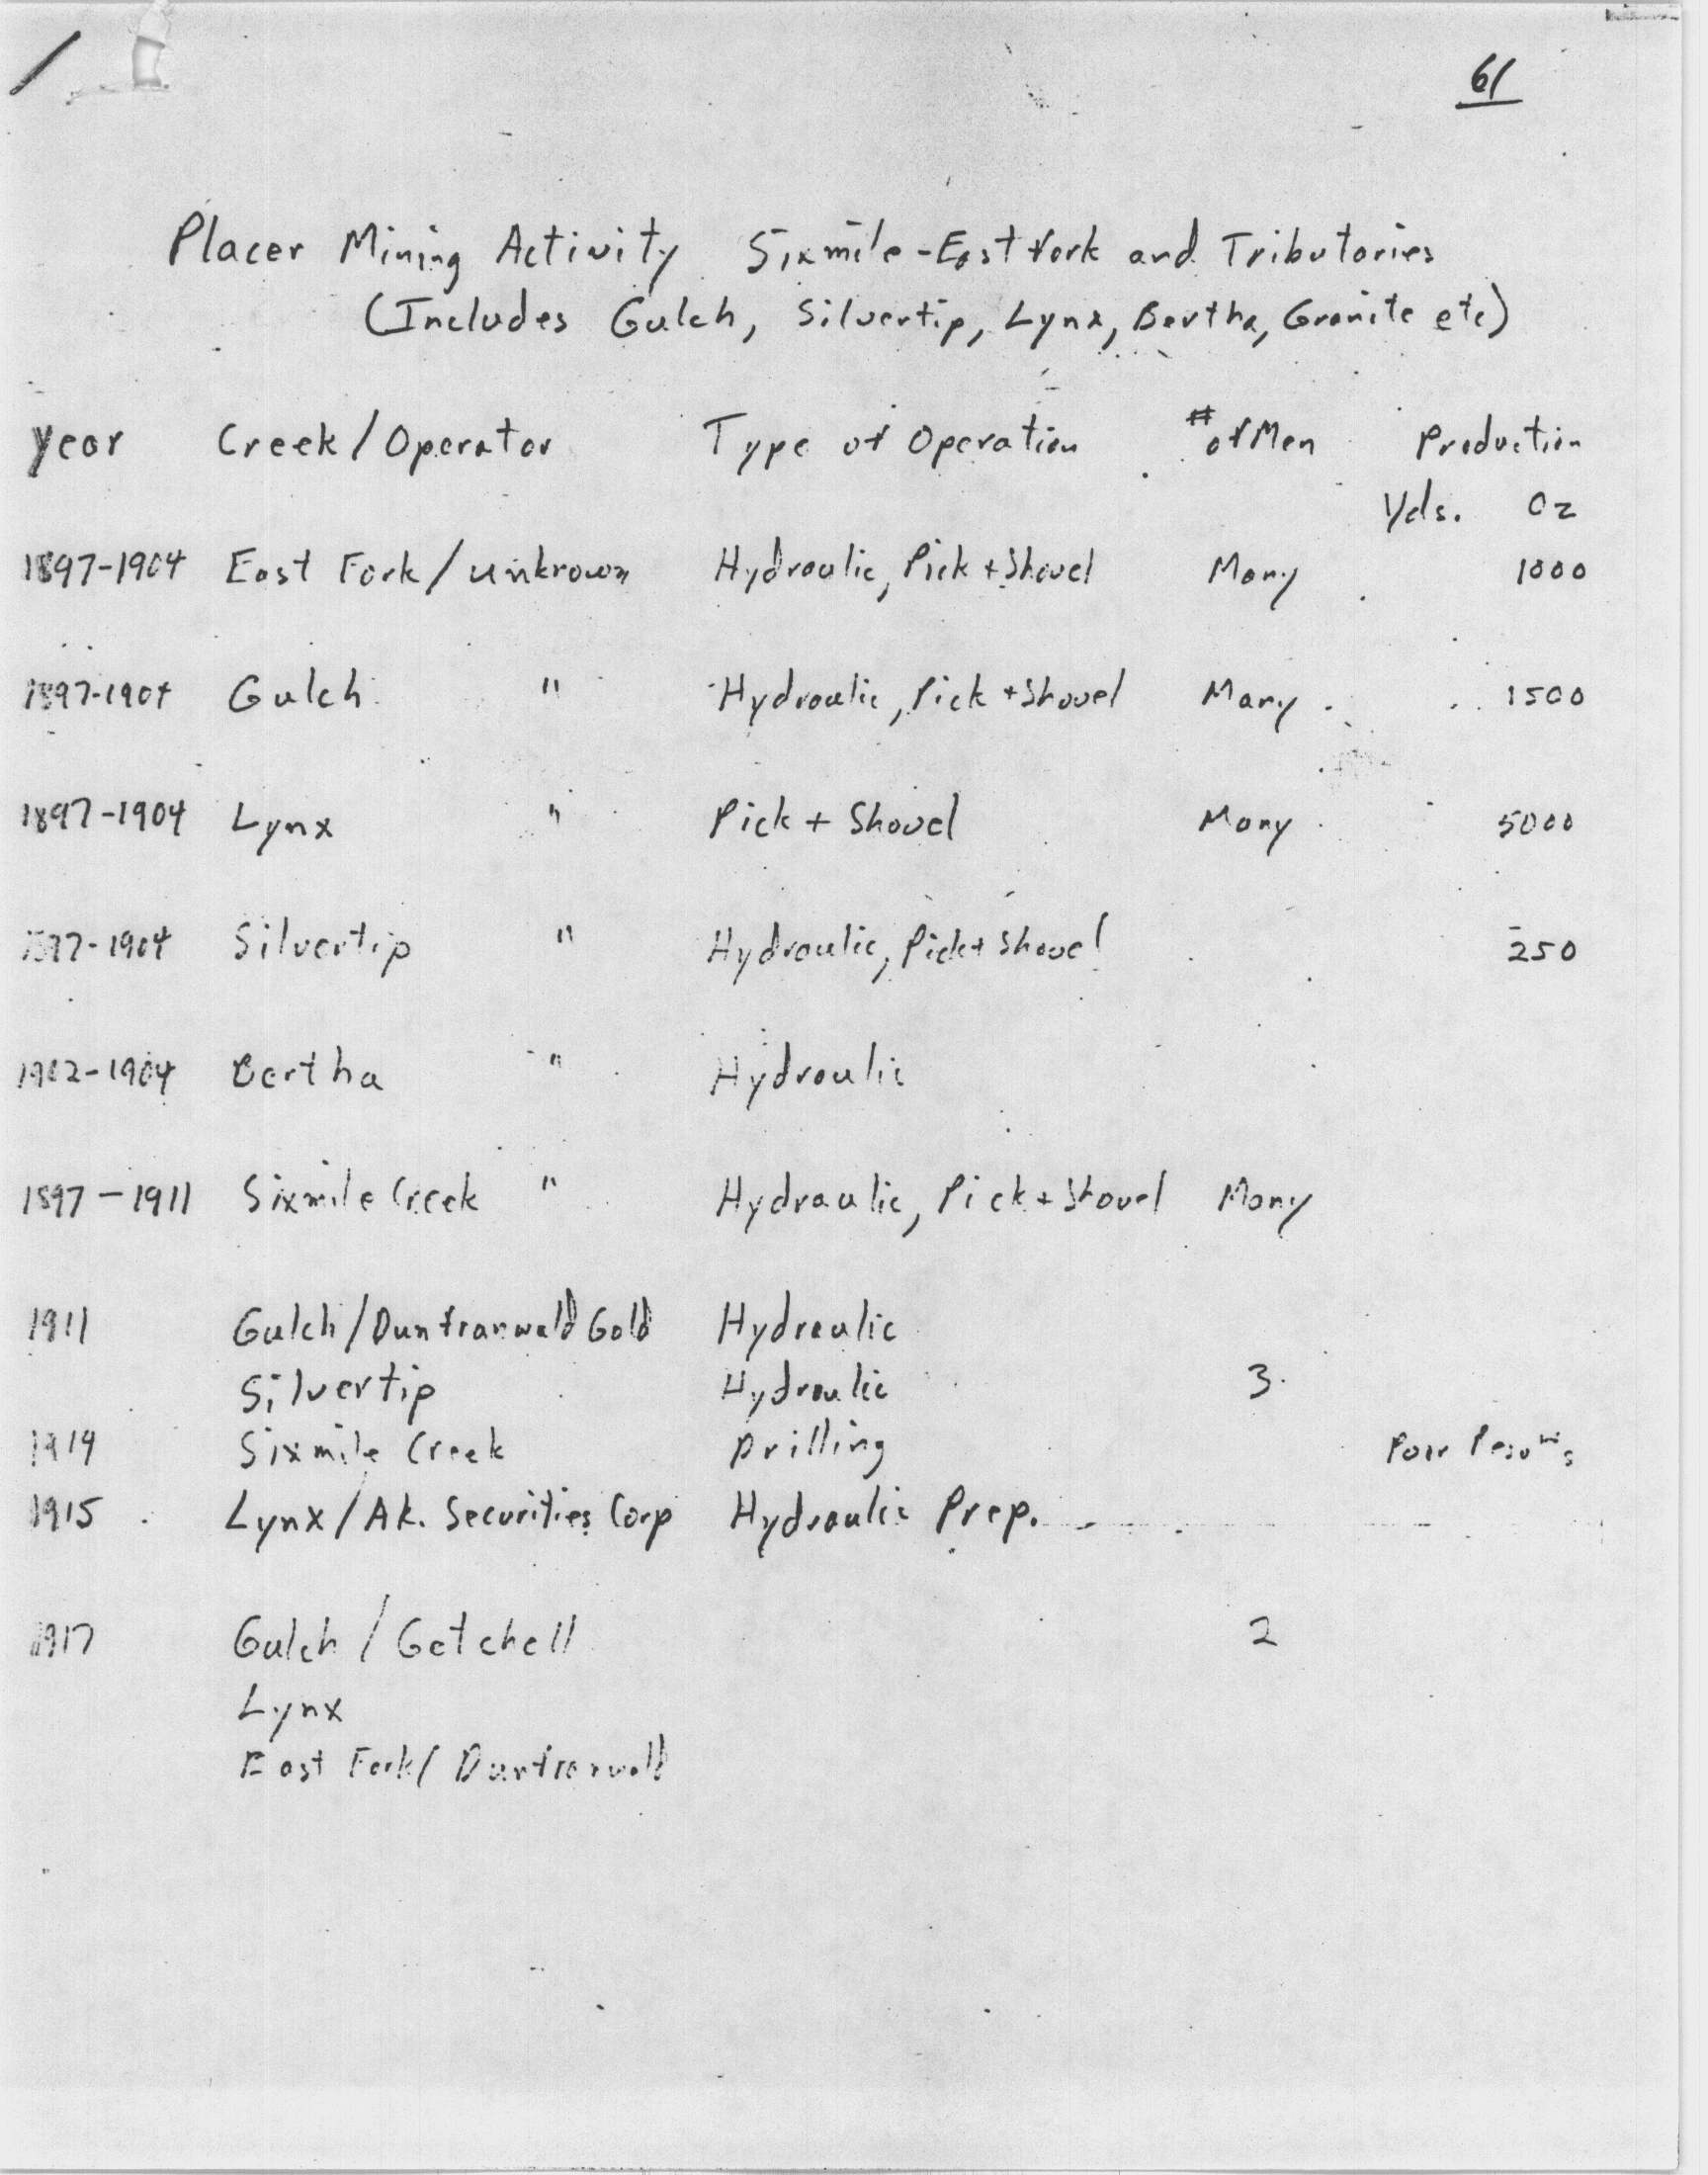 61
Placer Mining Activity Sixmile-East Fork and Tributaries
(Includes Gulch, Silvertip, Lynx, Bertha, Granite etc)
Year Creek/Operator Type of Operation # of Men Production
Yds. Oz
1897-1904 East Fork/unknown Hydraulic, Pick + Shovel Many 1000
1897-1904 Gulch " Hydraulic, Pick + Shovel Many 1500
1897-1904 Lynx " Pick + Shovel Many 5000
1897-1904 Silvertip " Hydraulic, Pick + Shovel 250
1902-1904 Bertha " Hydraulic
1897-1911 Sixmile Creek " Hydraulic, Pick + Shovel Many
1911 Gulch/Duntranwald Gold Hydraulic
Silvertip Hydraulic 3
1914 Sixmile Creek Drilling Poor Results
1915 Lynx/Ak. Securities Corp Hydraulic Prep.
1917 Gulch/Getchell 2
Lynx
East Fork/Duntranwald